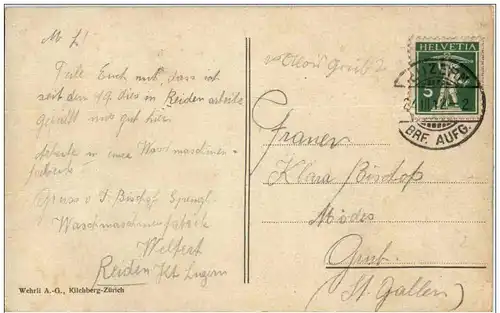 M. L!
Teile Euch mit dass ich
seit den 19. dies in Reiden arbeite
gefällt mir gut hier.
Arbeite in einer Waschmaschinen-
fabrik.
Gruss v. J. Bischof Spengl.
Waschmaschinenfabrik
Welfert
Reiden Kt. Luzern
Wehrli A.-G., Kilchberg-Zürich
Grub
HELVETIA
5
LUZERN
2
BRF. AUFG.
Frauen
Klara Bischof
Modes
Grub
(St. Gallen)